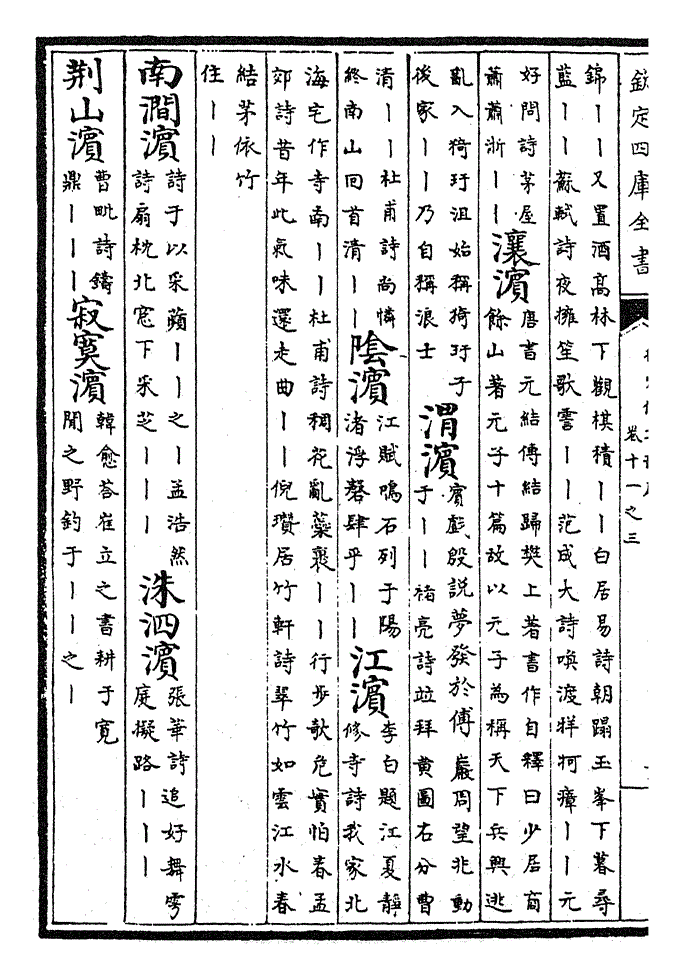 欽定四庫全書
卷十一之三
錦丨丨又置酒高林下觀棋積丨丨白居易詩朝蹋玉峯下暮尋
藍丨丨蘇軾詩夜擁笙歌霅丨丨范成大詩喚渡牂牁瘴丨丨元
好問詩茅屋
蕭蕭淅丨丨
瀼濱
唐書元結傳結歸樊上著書作自釋曰少居商
餘山著元子十篇故以元子為稱天下兵興逃
亂入猗玗沮始稱猗玗子
後家丨丨乃自稱浪士
渭濱
賓戲殷說夢發於傅巖周望兆動
于丨丨褚亮詩竝拜黄圖右分曹
清丨丨杜甫詩尚憐
終南山回首清丨丨
陰濱
江賦鳴石列于陽
渚浮磬肆乎丨丨
江濱
李白題江夏靜
修寺詩我家北
海宅作寺南丨丨杜甫詩稠花亂蘂裹丨丨行步欹危實怕春孟
郊詩昔年此氣味還走曲丨丨倪瓚居竹軒詩翠竹如雲江水春
結茅依竹
住丨丨
南澗濱
詩于以采蘋丨丨之丨孟浩然
詩扇枕北窓下采芝丨丨丨
洙泗濱
張華詩追好舞雩
庭擬路丨丨丨
荆山濱
曹毗詩鑄
鼎丨丨丨
寂寞濱
韓愈荅崔立之書耕于寛
閒之野釣于丨丨之丨